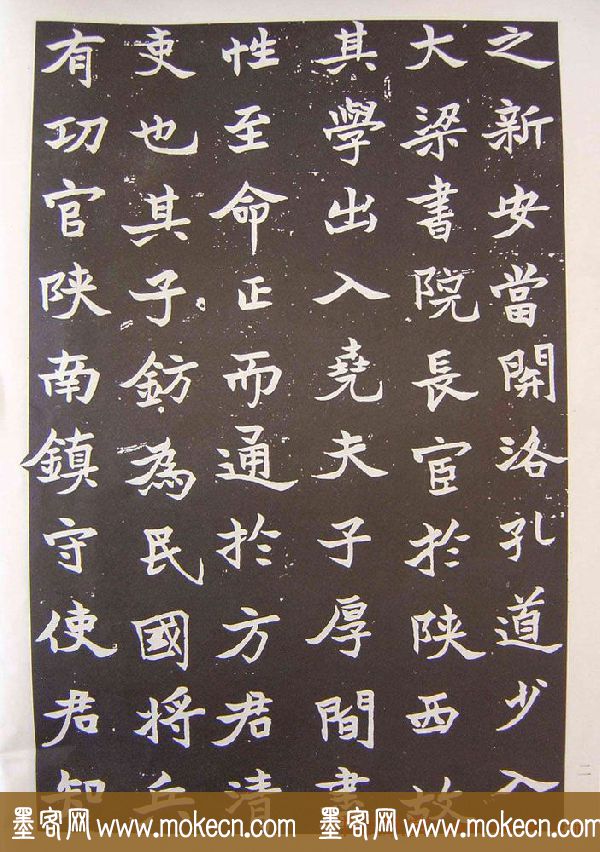 之新安當開洛孔道少入
大梁書院長宦於陝西故
其學出入堯夫子厚間書
性至命正而通於方君清
吏也其子鈁為民國将兵
有功官陕南鎮守使君知
二
墨客网 www.mokecn.com 墨客网 www.mokecn.com